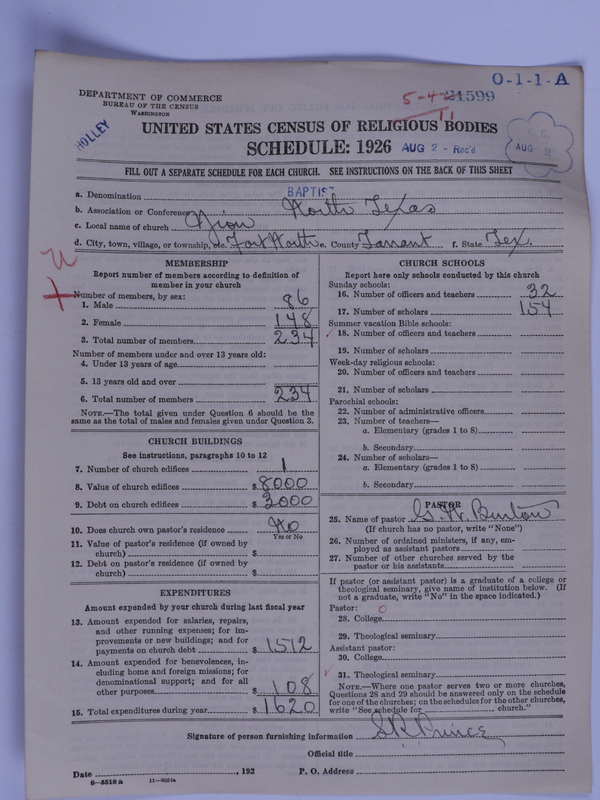 O-1-1-A
DEPARTMENT OF COMMERCE
BUREAU OF THE CENSUS
WASHINGTON
5-4-11
21599
HOLLEY
UNITED STATES CENSUS OF RELIGIOUS BODIES
SCHEDULE: 1926 AUG 2 - Rec'd
AUG 2
FILL OUT A SEPARATE SCHEDULE FOR EACH CHURCH. SEE INSTRUCTIONS ON THE BACK OF THIS SHEET
a. Denomination BAPTIST
b. Association or Conference North Texas
c. Local name of church
d. City, town, village, or township, etc. Fort Worth e. County Tarrant f. State Tex.
MEMBERSHIP
Report number of members according to definition of
member in your church
Number of members, by sex:
1. Male 86
2. Female 148
3. Total number of members 234
Number of members under and over 13 years old:
4. Under 13 years of age
5. 13 years old and over
6. Total number of members 234
NOTE.—The total given under Question 6 should be the
same as the total of males and females given under Question 3.
CHURCH BUILDINGS
See instructions, paragraphs 10 to 12
7. Number of church edifices 1
8. Value of church edifices $8000
9. Debt on church edifices $3000
10. Does church own pastor's residence No
Yes or No
11. Value of pastor's residence (if owned by
church) $
12. Debt on pastor's residence (if owned by
church) $
EXPENDITURES
Amount expended by your church during last fiscal year
13. Amount expended for salaries, repairs,
and other running expenses; for im-
provements or new buildings; and for
payments on church debt $1512
14. Amount expended for benevolences, in-
cluding home and foreign missions; for
denominational support; and for all
other purposes $108
15. Total expenditures during year $1620
CHURCH SCHOOLS
Report here only schools conducted by this church
Sunday schools:
16. Number of officers and teachers 32
17. Number of scholars 154
Summer vacation Bible schools:
18. Number of officers and teachers
19. Number of scholars
Week-day religious schools:
20. Number of officers and teachers
21. Number of scholars
Parochial schools:
22. Number of administrative officers
23. Number of teachers—
a. Elementary (grades 1 to 8)
b. Secondary
24. Number of scholars—
a. Elementary (grades 1 to 8)
b. Secondary
PASTOR
25. Name of pastor G. W. Burton
(If church has no pastor, write "None")
26. Number of ordained ministers, if any, em-
ployed as assistant pastors
27. Number of other churches served by the
pastor or his assistants
If pastor (or assistant pastor) is a graduate of a college or
theological seminary, give name of institution below. (If
not a graduate, write "No" in the space indicated.)
Pastor:
28. College
29. Theological seminary
Assistant pastor:
30. College
31. Theological seminary
NOTE.—Where one pastor serves two or more churches,
Questions 28 and 29 should be answered only on the schedule
for one of the churches; on the schedules for the other churches,
write "See schedule for church."
Signature of person furnishing information S.R. Prince
Official title
Date , 192 P. O. Address
8-5518a 11-9034a